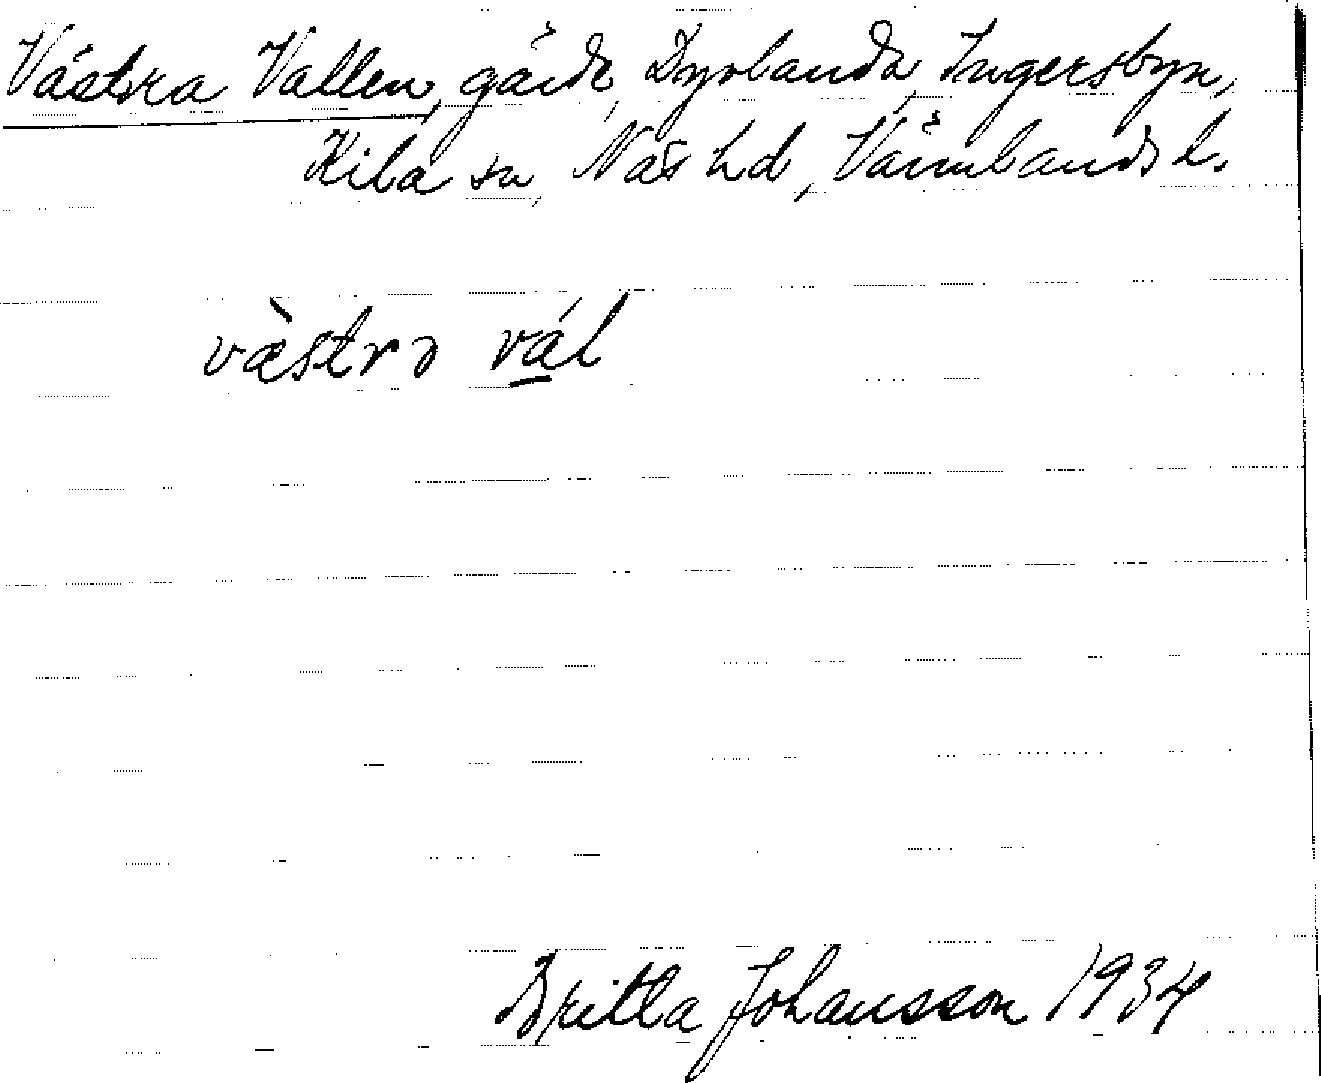 Västra Vallen, gärde, Dyrlanda, Ingersbyn,
Kila sn, Näs hd, Värmlands l.
væ̀strə vál
Britta Johansson 1934